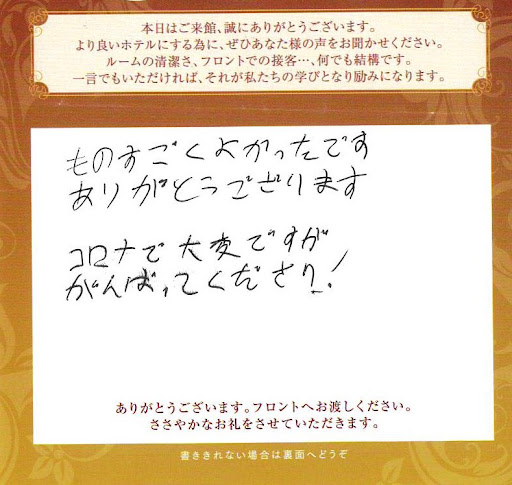 本日はご来館、誠にありがとうございます。
より良いホテルにする為に、ぜひあなた様の声をお聞かせください。
ルームの清潔さ、フロントでの接客…、何でも結構です。
一言でもいただければ、それが私たちの学びとなり励みになります。
ものすごくよかったです
ありがとうございます
コロナで大変ですが
がんばってください!
ありがとうございます。フロントへお渡しください。
ささやかなお礼をさせていただきます。
書ききれない場合は裏面へどうぞ